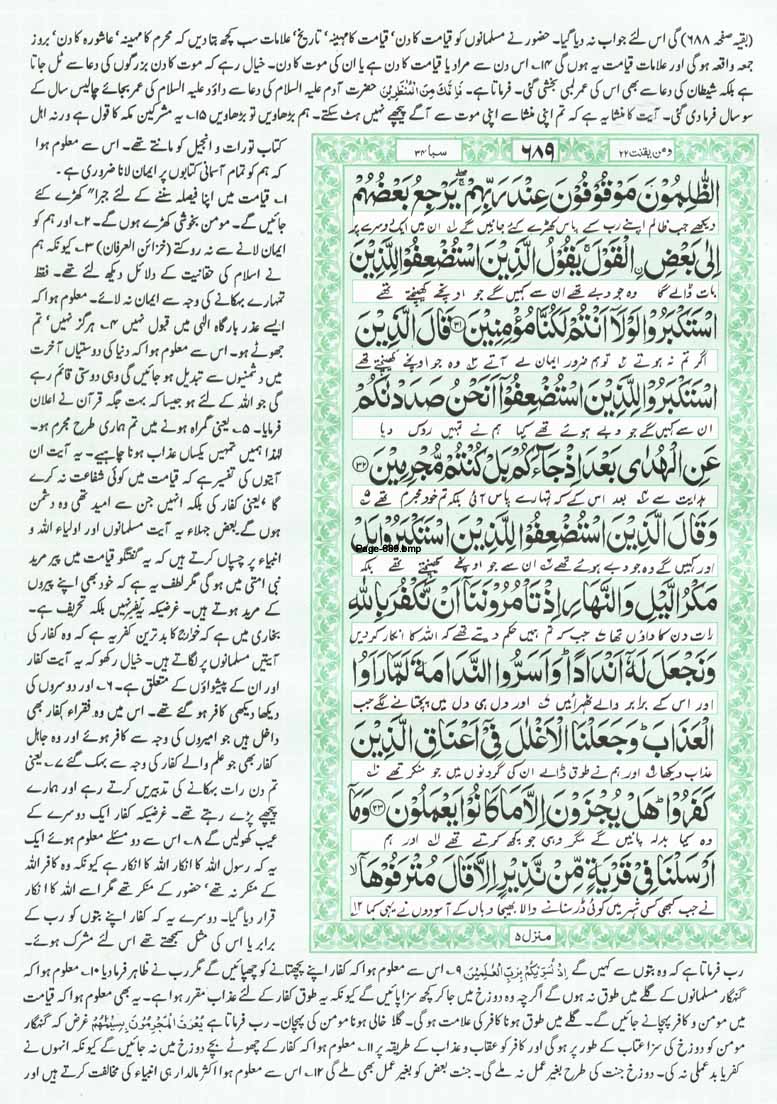 (بقیہ صفحہ ۶۸۸) گی اس لئے جواب نہ دیا گیا۔ حضور نے مسلمانوں کو قیامت کا دن' قیامت کا مہینہ' تاریخ' علامات سب کچھ بتا دیں کہ محرم کا مہینہ' عاشورہ کا دن' بروز
جمعہ واقعہ ہو گی اور علامات قیامت یہ ہوں گی ۱۴؎ اس دن سے مراد یا قیامت کا دن ہے یا ان کی موت کا دن۔ خیال رہے کہ موت کا دن بزرگوں کی دعا سے ٹل جاتا
ہے بلکہ شیطان کی دعا سے بھی اس کی عمر لمبی بخشی گئی۔ فرماتا ہے۔ فَاِنَّكَ مِنَ الْمُنْظَرِيْنَ حضرت آدم علیہ السلام کی دعا سے داؤد علیہ السلام کی عمر بجائے چالیس سال کے
سو سال فرما دی گئی۔ آیت کا منشا یہ ہے کہ تم اپنی منشا سے اپنی موت سے آگے پیچھے نہیں ہٹ سکتے۔ ہم بڑھاویں تو بڑھاویں ۱۵؎ یہ مشرکین مکہ کا قول ہے ورنہ اہل
کتاب تورات و انجیل کو مانتے تھے۔ اس سے معلوم ہوا
کہ ہم کو تمام آسمانی کتابوں پر ایمان لانا ضروری ہے۔
۱؎ قیامت میں اپنا فیصلہ سننے کے لئے جبراً کھڑے کئے
جائیں گے۔ مومن بخوشی کھڑے ہوں گے۔ ۲؎ اور ہم کو
ایمان لانے سے نہ روکتے (خزائن العرفان) ۳؎ کیونکہ ہم
نے اسلام کی حقانیت کے دلائل دیکھ لئے تھے۔ فقط
تمہارے بہکانے کی وجہ سے ایمان نہ لائے۔ معلوم ہوا کہ
ایسے عذر بارگاہ الٰہی میں قبول نہیں ۴؎ ہرگز نہیں' تم
جھوٹے ہو۔ اس سے معلوم ہوا کہ دنیا کی دوستیاں آخرت
میں دشمنوں سے تبدیل ہو جائیں گی وہی دوستی قائم رہے
گی جو اللہ کے لئے ہو جیسا کہ بہت جگہ قرآن نے اعلان
فرمایا۔ ۵؎ یعنی گمراہ ہونے میں تم ہماری طرح مجرم ہو۔
لہٰذا ہمیں تمہیں یکساں عذاب ہونا چاہیے۔ یہ آیت ان
آیتوں کی تفسیر ہے کہ قیامت میں کوئی شفاعت نہ کرے
گا ' یعنی کفار کی بلکہ انہیں جن سے امید تھی وہ دشمن
ہوں گے۔ بعض جہلاء یہ آیت مسلمانوں اور اولیاء اللہ و
انبیاء پر چسپاں کرتے ہیں کہ یہ گفتگو قیامت میں پیر مرید
نبی امتی میں ہو گی مگر لطف یہ ہے کہ خود بھی اپنے پیروں
کے مرید ہوتے ہیں۔ غرضیکہ یہ تفسیر نہیں بلکہ تحریف ہے۔
بخاری میں ہے کہ خوارج کا بدترین کفر یہ ہے کہ وہ کفار کی
آیتیں مسلمانوں پر لگاتے ہیں۔ خیال رکھو کہ یہ آیت کفار
اور ان کے پیشواؤں کے متعلق ہے۔ ۶؎ اور دوسروں کی
دیکھا دیکھی کافر ہو گئے تھے۔ اس میں وہ فقراء کفار بھی
داخل ہیں جو امیروں کی وجہ سے کافر ہوئے اور وہ جاہل
کفار بھی جو علم والے کفار کی وجہ سے بہک گئے ۷؎ یعنی
تم دن رات بہکانے کی تدبیریں کرتے رہے اور ہمارے
پیچھے پڑے رہتے تھے۔ غرضیکہ کفار ایک دوسرے کے
عیب کھولیں گے ۸؎ اس سے دو مسئلے معلوم ہوئے ایک
یہ کہ رسول اللہ کا انکار اللہ کا انکار ہے کیونکہ وہ کافر اللہ
کے منکر نہ تھے' حضور کے منکر تھے مگر اسے اللہ کا انکار
قرار دیا گیا۔ دوسرے یہ کہ کفار اپنے بتوں کو رب کے
برابر یا اس کی مثل سمجھتے تھے اس لئے مشرک ہوئے۔
ومن یقنت ۲۲
۶۸۹
سبا ۳۴
الظّٰلِمُوْنَ مَوْقُوْفُوْنَ عِنْدَ رَبِّهِمْ ۖۚ يَرْجِعُ بَعْضُهُمْ
دیکھے جب ظالم اپنے رب کے پاس کھڑے کئے جائیں گے ان میں ایک دوسرے پر
اِلٰى بَعْضِ ِۨ الْقَوْلَ ۚ يَقُوْلُ الَّذِيْنَ اسْتُضْعِفُوْا لِلَّذِيْنَ
بات ڈالے گا وہ جو دبے تھے ان سے کہیں گے جو اونچے کھینچتے تھے
اسْتَكْبَرُوْا لَوْلَاۤ اَنْتُمْ لَكُنَّا مُؤْمِنِيْنَ ﴿۳۱﴾ قَالَ الَّذِيْنَ
اگر تم نہ ہوتے تو ہم ضرور ایمان لے آتے وہ جو اونچے کھینچتے تھے
اسْتَكْبَرُوْا لِلَّذِيْنَ اسْتُضْعِفُوْۤا اَنَحْنُ صَدَدْنٰكُمْ
ان سے کہیں گے جو دبے ہوئے تھے کیا ہم نے تمہیں روک دیا
عَنِ الْهُدٰى بَعْدَ اِذْ جَآءَكُمْ بَلْ كُنْتُمْ مُّجْرِمِيْنَ ﴿۳۲﴾
ہدایت سے بعد اس کے کہ تمہارے پاس آئی بلکہ تم خود مجرم تھے
وَ قَالَ الَّذِيْنَ اسْتُضْعِفُوْا لِلَّذِيْنَ اسْتَكْبَرُوْا بَلْ
Page-689.bmp
اور کہیں گے وہ جو دبے ہوئے تھے ان سے جو اونچے کھینچتے تھے بلکہ
مَكْرُ الَّيْلِ وَ النَّهَارِ اِذْ تَاْمُرُوْنَنَاۤ اَنْ نَّكْفُرَ بِاللّٰهِ
رات دن کا داؤں تھا جب کہ تم ہمیں حکم دیتے تھے کہ اللہ کا انکار کریں
وَ نَجْعَلَ لَهٗۤ اَنْدَادًا ؕ وَ اَسَرُّوا النَّدَامَةَ لَمَّا رَاَوُا
اور اس کے برابر والے ٹھہرائیں اور دل ہی دل میں پچتانے لگے جب
الْعَذَابَ ؕ وَ جَعَلْنَا الْاَغْلٰلَ فِيْۤ اَعْنَاقِ الَّذِيْنَ
عذاب دیکھا اور ہم نے طوق ڈالے ان کی گردنوں میں جو منکر تھے
كَفَرُوْا ؕ هَلْ يُجْزَوْنَ اِلَّا مَا كَانُوْا يَعْمَلُوْنَ ﴿۳۳﴾ وَ مَاۤ
وہ کیا بدلہ پائیں گے مگر وہی جو کچھ کرتے تھے اور ہم
اَرْسَلْنَا فِيْ قَرْيَةٍ مِّنْ نَّذِيْرٍ اِلَّا قَالَ مُتْرَفُوْهَاۤ ۙ
نے جب کبھی کسی شہر میں کوئی ڈر سنانے والا بھیجا وہاں کے آسودوں نے یہی کہا ۱۲
منزل ۵
رب فرماتا ہے کہ وہ بتوں سے کہیں گے اِذْ نُسَوِّيْكُمْ بِرَبِّ الْعٰلَمِيْنَ ۹؎ اس سے معلوم ہوا کہ کفار اپنے پچھتانے کو چھپائیں گے مگر رب نے ظاہر فرما دیا ۱۰؎ معلوم ہوا کہ
گنہگار مسلمانوں کے گلے میں طوق نہ ہوں گے اگرچہ وہ دوزخ میں جا کر کچھ سزا پائیں گے کیونکہ یہ طوق کفار کے لئے عذاب مقرر ہوا ہے۔ یہ بھی معلوم ہوا کہ قیامت
میں مومن و کافر پہچانے جائیں گے۔ گلے میں طوق ہونا کافر کی علامت ہو گی۔ گلا خالی ہونا مومن کی پہچان۔ رب فرماتا ہے يُعْرَفُ الْمُجْرِمُوْنَ بِسِيْمٰهُمْ غرض کہ گنہگار
مومن کو دوزخ کی سزا عتاب کے طور پر ہو گی اور کافر کو عقاب و عذاب کے طریقہ پر ۱۱؎ معلوم ہوا کہ کفار کے چھوٹے بچے دوزخ میں نہ جائیں گے کیونکہ انہوں نے
کفر یا بد عملی نہ کی۔ دوزخ جنت کی طرح بغیر عمل نہ ملے گی۔ جنت بعض کو بغیر عمل بھی ملے گی ۱۲؎ اس سے معلوم ہوا اکثر مالدار ہی انبیاء کی مخالفت کرتے ہیں اور